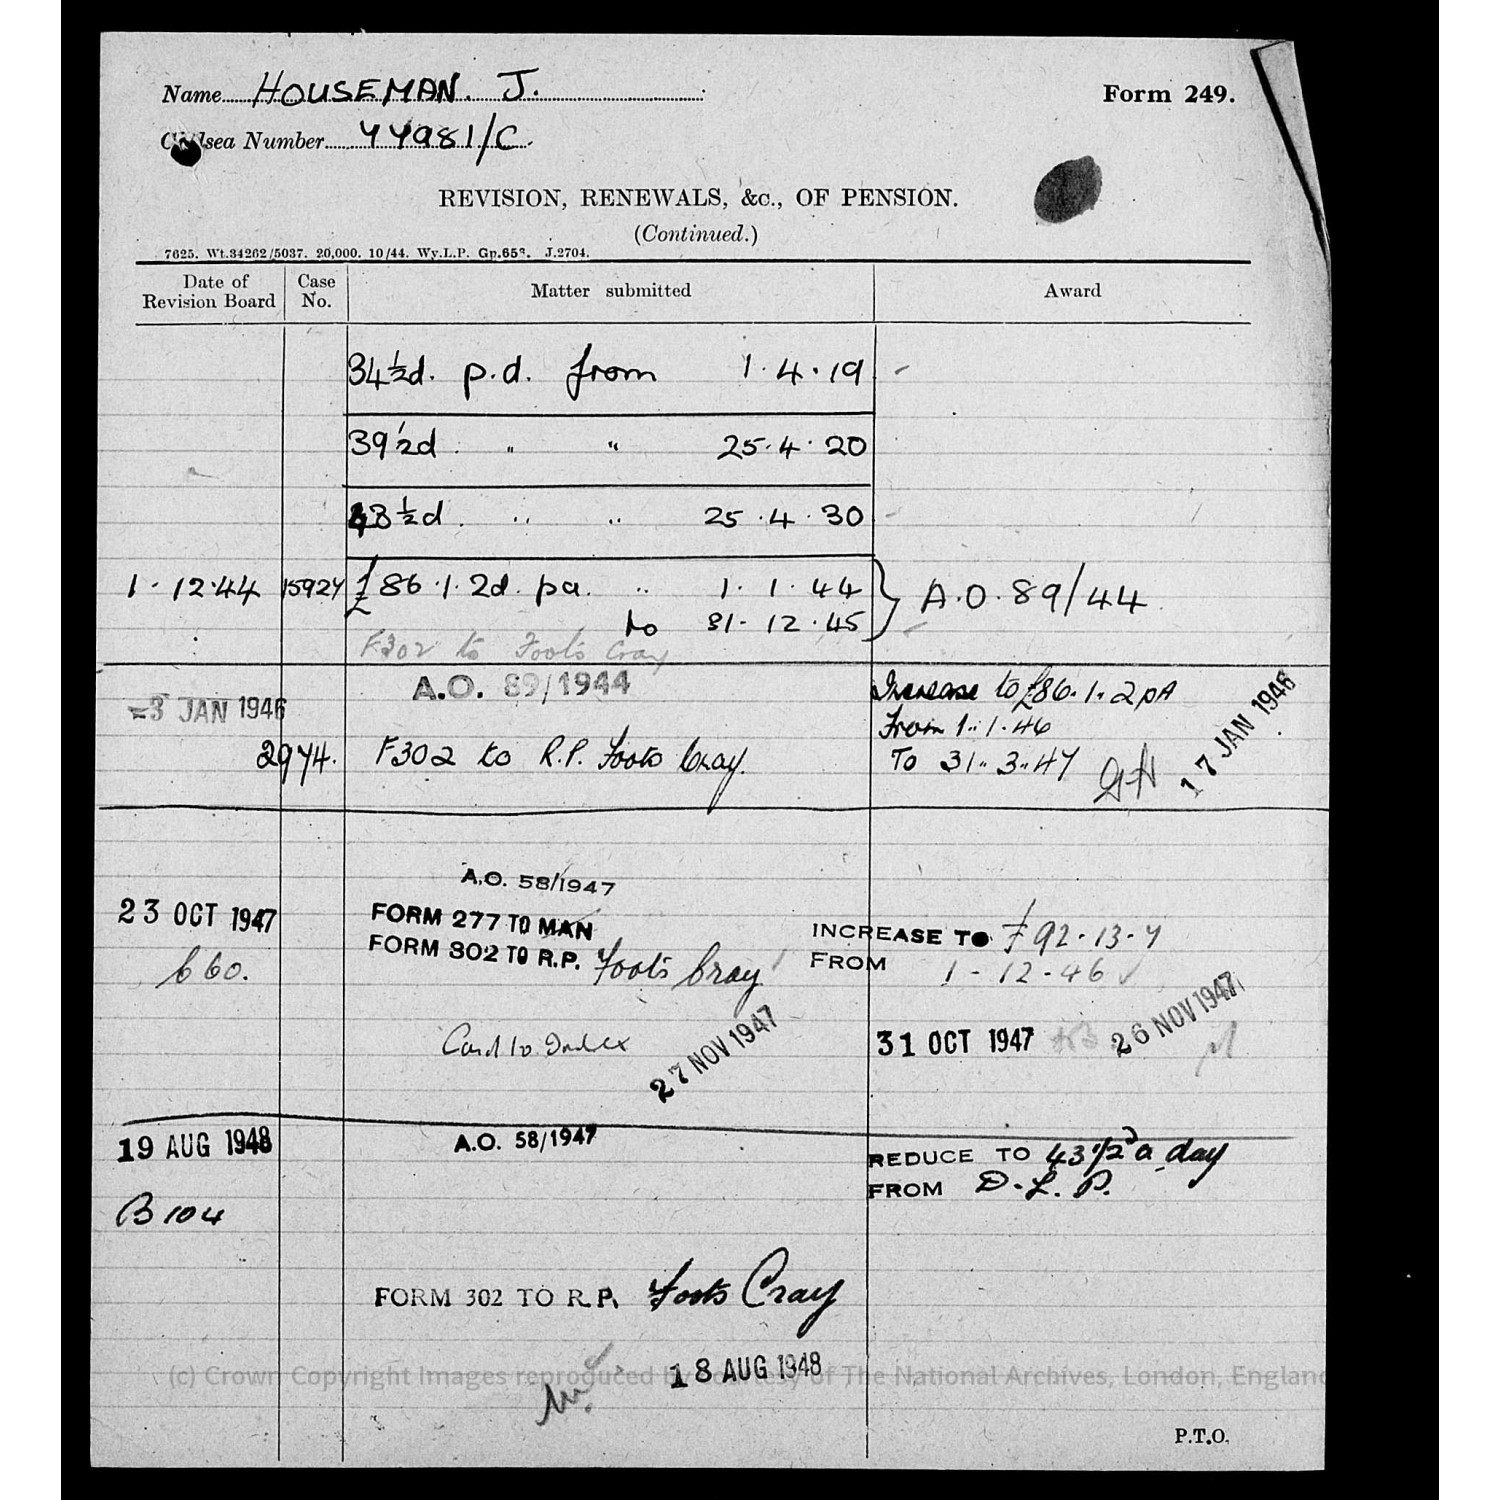 Name HOUSEMAN. J.
Form 249.
Chelsea Number 44981/C
REVISION, RENEWALS, &c., OF PENSION.
(Continued.)
7625. Wt.34262/5037. 20,000. 10/44. Wy.L.P. Gp.658. J.2704.
Date of Revision Board
Case No.
Matter submitted
Award
34½d. p.d. from 1.4.19
39½d. " " 25.4.20
43½d. " " 25.4.30
1.12.44 15924 £86.1.2d. pa. " 1.1.44
to 31.12.45
A.O.89/44
F302 to Foots Cray
-3 JAN 1946
A.O. 89/1944
2974. F302 to R.P. Foots Cray.
Increase to £86.1.2 pA
From 1.1.46
To 31.3.47
17 JAN 1946
A.O. 58/1947
23 OCT 1947
FORM 277 TO MAN
FORM 302 TO R.P. Foots Cray
660.
INCREASE TO £92.13.7
FROM 1-12-46
Card to Index
27 NOV 1947
31 OCT 1947
26 NOV 1947
19 AUG 1948
A.O. 58/1947
REDUCE TO 43½d a day
FROM D.L.P.
B104
FORM 302 TO R.P. Foots Cray
18 AUG 1948
(c) Crown Copyright Images reproduced by courtesy of The National Archives, London, England
P.T.O.